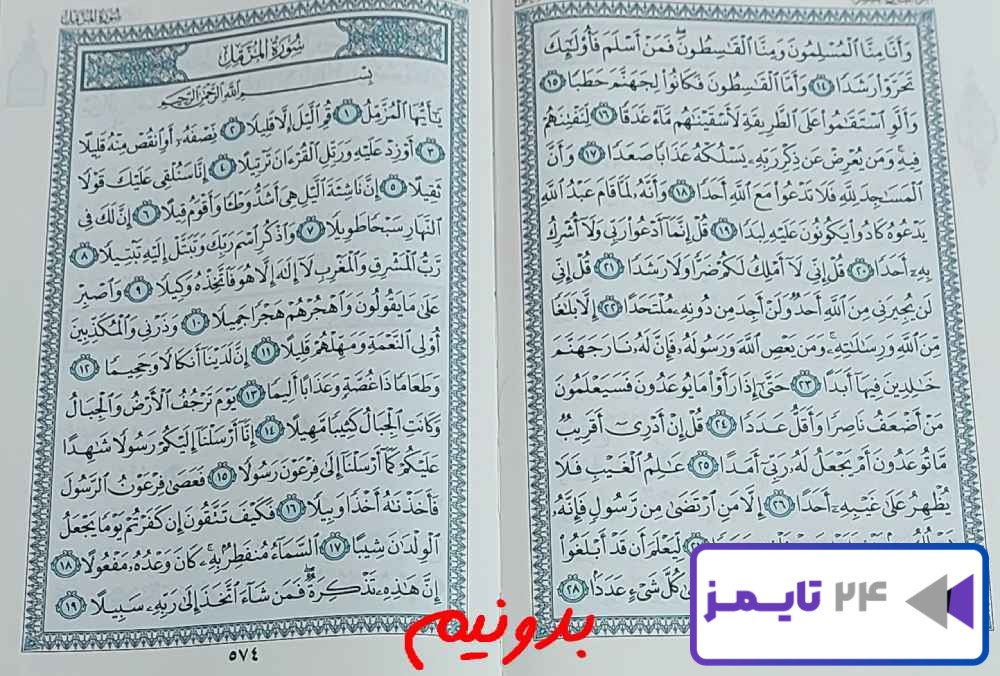 وَأَنَّا مِنَّا ٱلْمُسْلِمُونَ وَمِنَّا ٱلْقَٰسِطُونَ ۖ فَمَنْ أَسْلَمَ فَأُو۟لَٰٓئِكَ
تَحَرَّوْا۟ رَشَدًا ١٤ وَأَمَّا ٱلْقَٰسِطُونَ فَكَانُوا۟ لِجَهَنَّمَ حَطَبًا ١٥
وَأَلَّوِ ٱسْتَقَٰمُوا۟ عَلَى ٱلطَّرِيقَةِ لَأَسْقَيْنَٰهُم مَّآءً غَدَقًا ١٦ لِّنَفْتِنَهُمْ
فِيهِ ۚ وَمَن يُعْرِضْ عَن ذِكْرِ رَبِّهِۦ يَسْلُكْهُ عَذَابًا صَعَدًا ١٧ وَأَنَّ
ٱلْمَسَٰجِدَ لِلَّهِ فَلَا تَدْعُوا۟ مَعَ ٱللَّهِ أَحَدًا ١٨ وَأَنَّهُۥ لَمَّا قَامَ عَبْدُ ٱللَّهِ
يَدْعُوهُ كَادُوا۟ يَكُونُونَ عَلَيْهِ لِبَدًا ١٩ قُلْ إِنَّمَآ أَدْعُوا۟ رَبِّى وَلَآ أُشْرِكُ
بِهِۦٓ أَحَدًا ٢٠ قُلْ إِنِّى لَآ أَمْلِكُ لَكُمْ ضَرًّا وَلَا رَشَدًا ٢١ قُلْ إِنِّى
لَن يُجِيرَنِى مِنَ ٱللَّهِ أَحَدٌ وَلَنْ أَجِدَ مِن دُونِهِۦ مُلْتَحَدًا ٢٢ إِلَّا بَلَٰغًا
مِّنَ ٱللَّهِ وَرِسَٰلَٰتِهِۦ ۚ وَمَن يَعْصِ ٱللَّهَ وَرَسُولَهُۥ فَإِنَّ لَهُۥ نَارَ جَهَنَّمَ
خَٰلِدِينَ فِيهَآ أَبَدًا ٢٣ حَتَّىٰٓ إِذَا رَأَوْا۟ مَا يُوعَدُونَ فَسَيَعْلَمُونَ
مَنْ أَضْعَفُ نَاصِرًا وَأَقَلُّ عَدَدًا ٢٤ قُلْ إِنْ أَدْرِىٓ أَقَرِيبٌ
مَّا تُوعَدُونَ أَمْ يَجْعَلُ لَهُۥ رَبِّىٓ أَمَدًا ٢٥ عَٰلِمُ ٱلْغَيْبِ فَلَا
يُظْهِرُ عَلَىٰ غَيْبِهِۦٓ أَحَدًا ٢٦ إِلَّا مَنِ ٱرْتَضَىٰ مِن رَّسُولٍ فَإِنَّهُۥ
٢٧ لِّيَعْلَمَ أَن قَدْ أَبْلَغُوا۟
كُلَّ شَىْءٍ عَدَدًۢا ٢٨
سُورَةُ المُزَّمِّل
سُورَةُ المُزَّمِّل
بِسْمِ ٱللَّهِ ٱلرَّحْمَٰنِ ٱلرَّحِيمِ
يَٰٓأَيُّهَا ٱلْمُزَّمِّلُ ١ قُمِ ٱلَّيْلَ إِلَّا قَلِيلًا ٢ نِّصْفَهُۥٓ أَوِ ٱنقُصْ مِنْهُ قَلِيلًا
٣ أَوْ زِدْ عَلَيْهِ وَرَتِّلِ ٱلْقُرْءَانَ تَرْتِيلًا ٤ إِنَّا سَنُلْقِى عَلَيْكَ قَوْلًا
ثَقِيلًا ٥ إِنَّ نَاشِئَةَ ٱلَّيْلِ هِىَ أَشَدُّ وَطْـًٔا وَأَقْوَمُ قِيلًا ٦ إِنَّ لَكَ فِى
ٱلنَّهَارِ سَبْحًا طَوِيلًا ٧ وَٱذْكُرِ ٱسْمَ رَبِّكَ وَتَبَتَّلْ إِلَيْهِ تَبْتِيلًا ٨
رَّبُّ ٱلْمَشْرِقِ وَٱلْمَغْرِبِ لَآ إِلَٰهَ إِلَّا هُوَ فَٱتَّخِذْهُ وَكِيلًا ٩ وَٱصْبِرْ
عَلَىٰ مَا يَقُولُونَ وَٱهْجُرْهُمْ هَجْرًا جَمِيلًا ١٠ وَذَرْنِى وَٱلْمُكَذِّبِينَ
أُو۟لِى ٱلنَّعْمَةِ وَمَهِّلْهُمْ قَلِيلًا ١١ إِنَّ لَدَيْنَآ أَنكَالًا وَجَحِيمًا ١٢
وَطَعَامًا ذَا غُصَّةٍ وَعَذَابًا أَلِيمًا ١٣ يَوْمَ تَرْجُفُ ٱلْأَرْضُ وَٱلْجِبَالُ
وَكَانَتِ ٱلْجِبَالُ كَثِيبًا مَّهِيلًا ١٤ إِنَّآ أَرْسَلْنَآ إِلَيْكُمْ رَسُولًا شَٰهِدًا
عَلَيْكُمْ كَمَآ أَرْسَلْنَآ إِلَىٰ فِرْعَوْنَ رَسُولًا ١٥ فَعَصَىٰ فِرْعَوْنُ ٱلرَّسُولَ
فَأَخَذْنَٰهُ أَخْذًا وَبِيلًا ١٦ فَكَيْفَ تَتَّقُونَ إِن كَفَرْتُمْ يَوْمًا يَجْعَلُ
ٱلْوِلْدَٰنَ شِيبًا ١٧ ٱلسَّمَآءُ مُنفَطِرٌۢ بِهِۦ ۚ كَانَ وَعْدُهُۥ مَفْعُولًا ١٨
إِنَّ هَٰذِهِۦ تَذْكِرَةٌ ۖ فَمَن شَآءَ ٱتَّخَذَ إِلَىٰ رَبِّهِۦ سَبِيلًا ١٩
٥٧٤
بدونیم
۲۴ تایمز